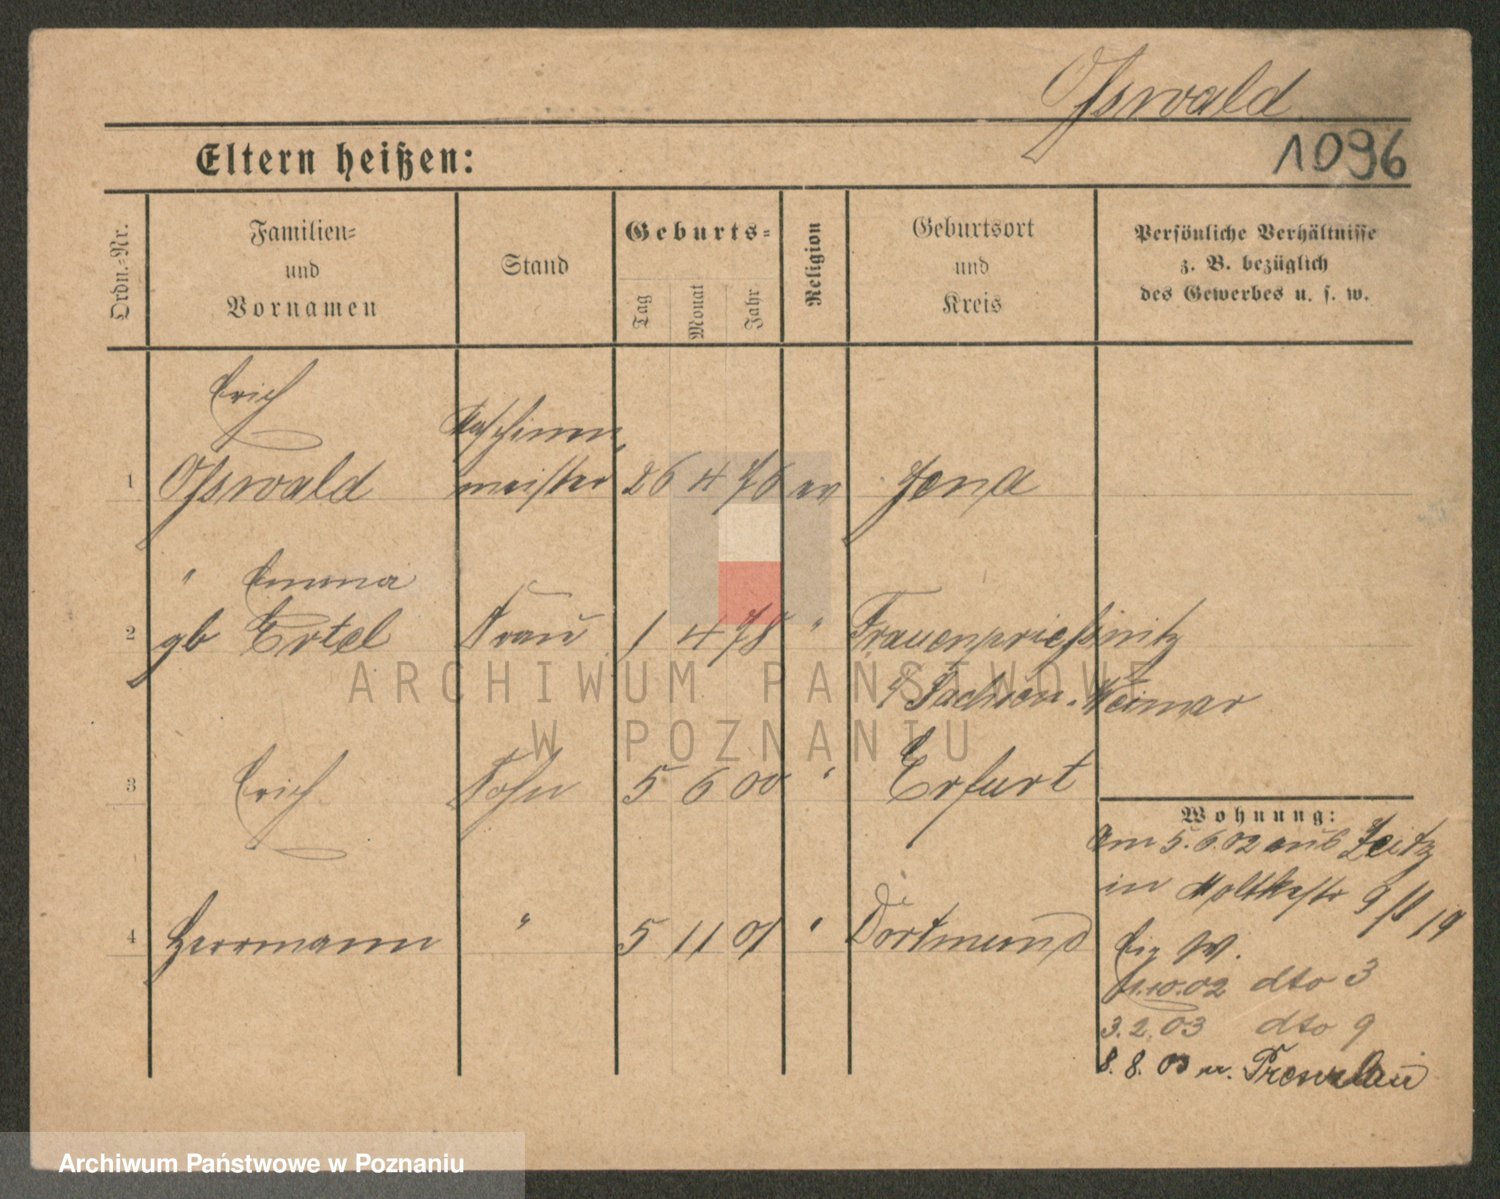 Oſswald
1096
Eltern heißen:
Ordn.-Nr.
Familien-
und
Vornamen
Stand
Geburts-
Tag
Monat
Jahr
Religion
Geburtsort
und
Kreis
Persönliche Verhältnisse
z. B. bezüglich
des Gewerbes u. s. w.
Erich
Maschinen
1 Oſswald meister 26 4 76 ev Jena
" Emma
2 gb Ertel Frau 1 4 78 " Frauenprießnitz
Sachsen-Weimar
3 Erich Sohn 5 6 00 " Erfurt
4 Herrmann " 5 11 01 " Dortmund
Wohnung:
Am 5.6.02 aus Zeitz
in Moltkestr 9
W.
10.02 dto 3
3.2.03 dto 9
8.8.03 n. Breslau
ARCHIWUM PAŃSTWOWE
W POZNANIU
Archiwum Państwowe w Poznaniu